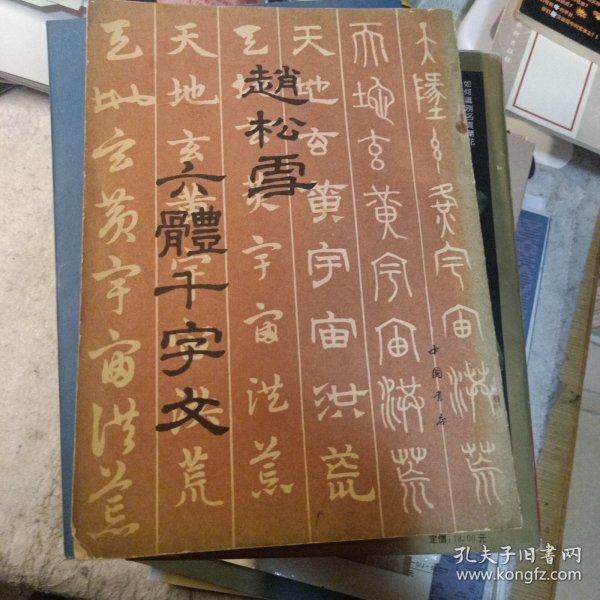 趙松雪
六體千字文
中國書店
定價:18.00元
天地玄黃宇宙洪荒
天地玄黃宇宙洪荒
天地玄黃宇宙洪荒
天地玄黃宇宙洪荒
天地玄黃宇宙洪荒
天地玄黃宇宙洪荒
如何識別名貴蘭花
孔夫子旧书网
www.kongfz.com